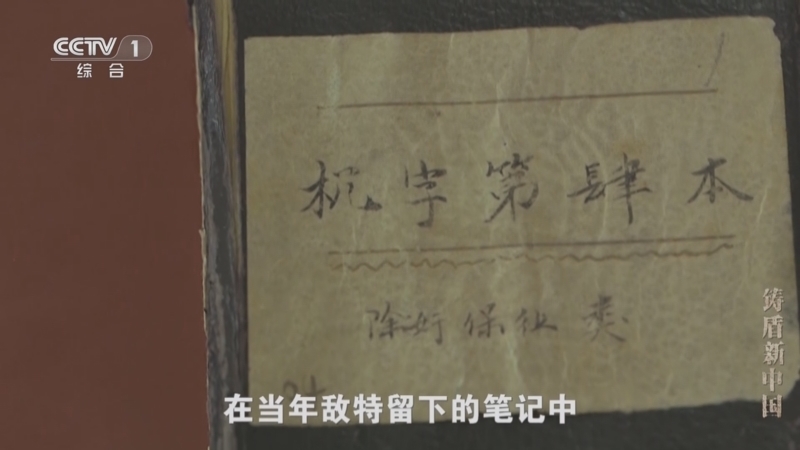 CCTV 1
综合
机字第肆本
除奸保组类
在当年敌特留下的笔记中
铸盾新中国